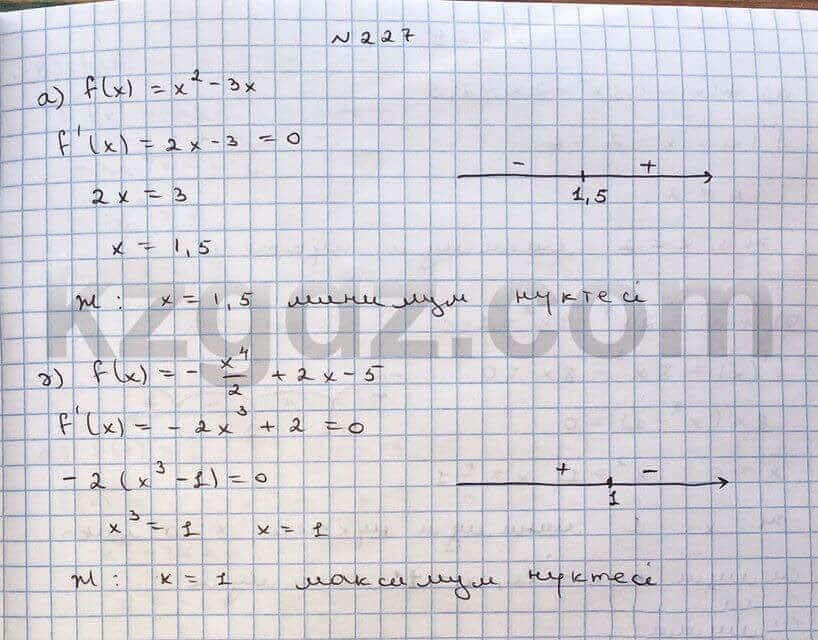 № 227
а) f(x) = x² - 3x
f'(x) = 2x - 3 = 0
- +
1,5
2x = 3
x = 1,5
Ж: x = 1,5 минимум нүктесі
kzgdz.com
г) f(x) = - x⁴/2 + 2x - 5
f'(x) = - 2x³ + 2 = 0
- 2 (x³ - 1) = 0
+ -
1
x³ = 1 x = 1
Ж: x = 1 максимум нүктесі